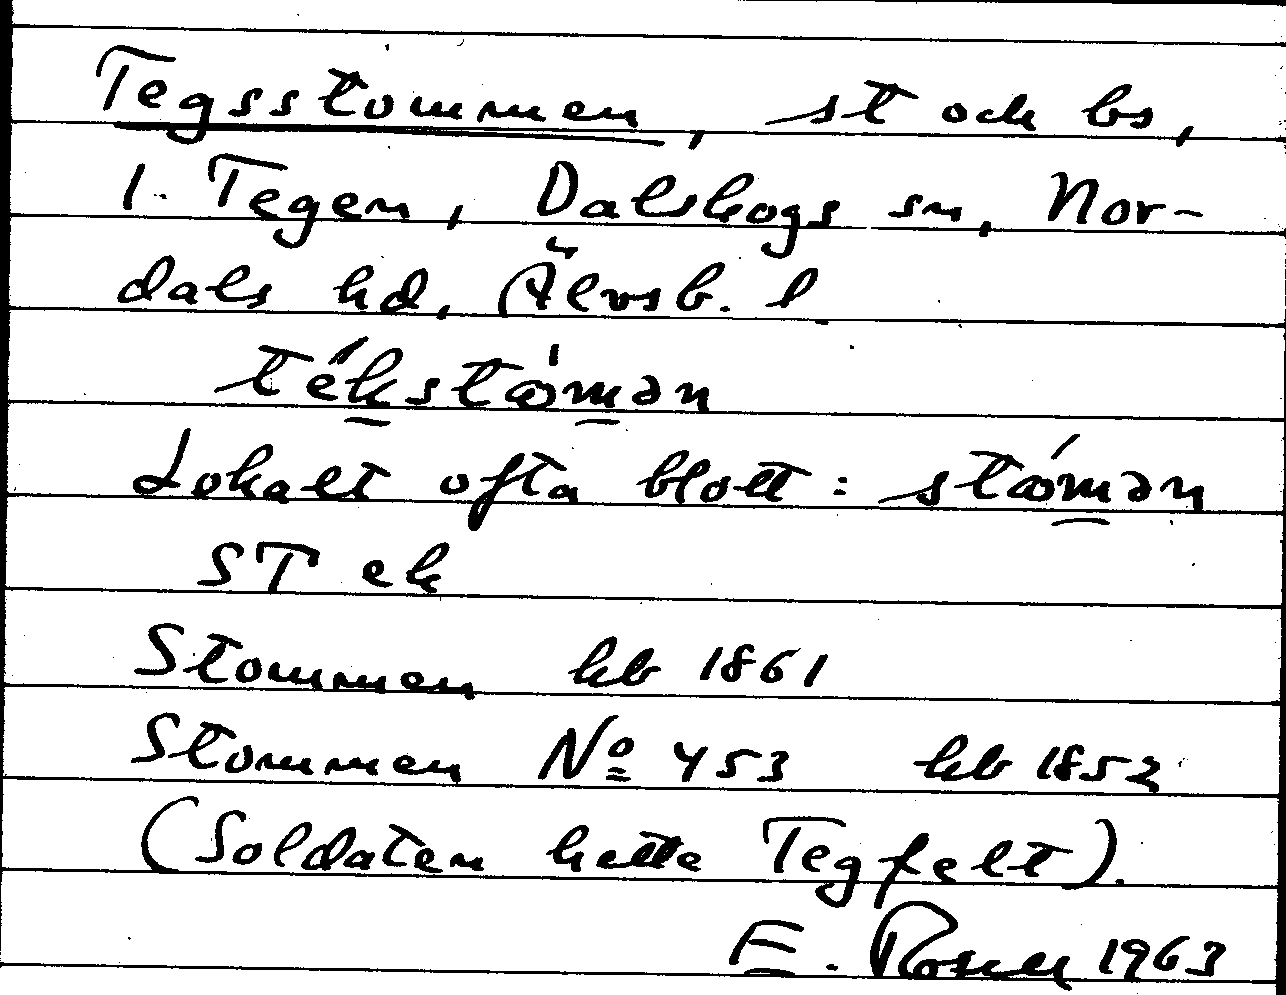 Tegsstommen, st och bs,
1. Tegen, Dalskogs sn, Nor-
dals hd, Älvsb. l
tékstò̀mən
Lokalt ofta blott: stò́mən
ST ek
Stommen hb 1861
Stommen Nº 453 hb 1852
(Soldaten hette Tegfelt).
E. Rosell 1963